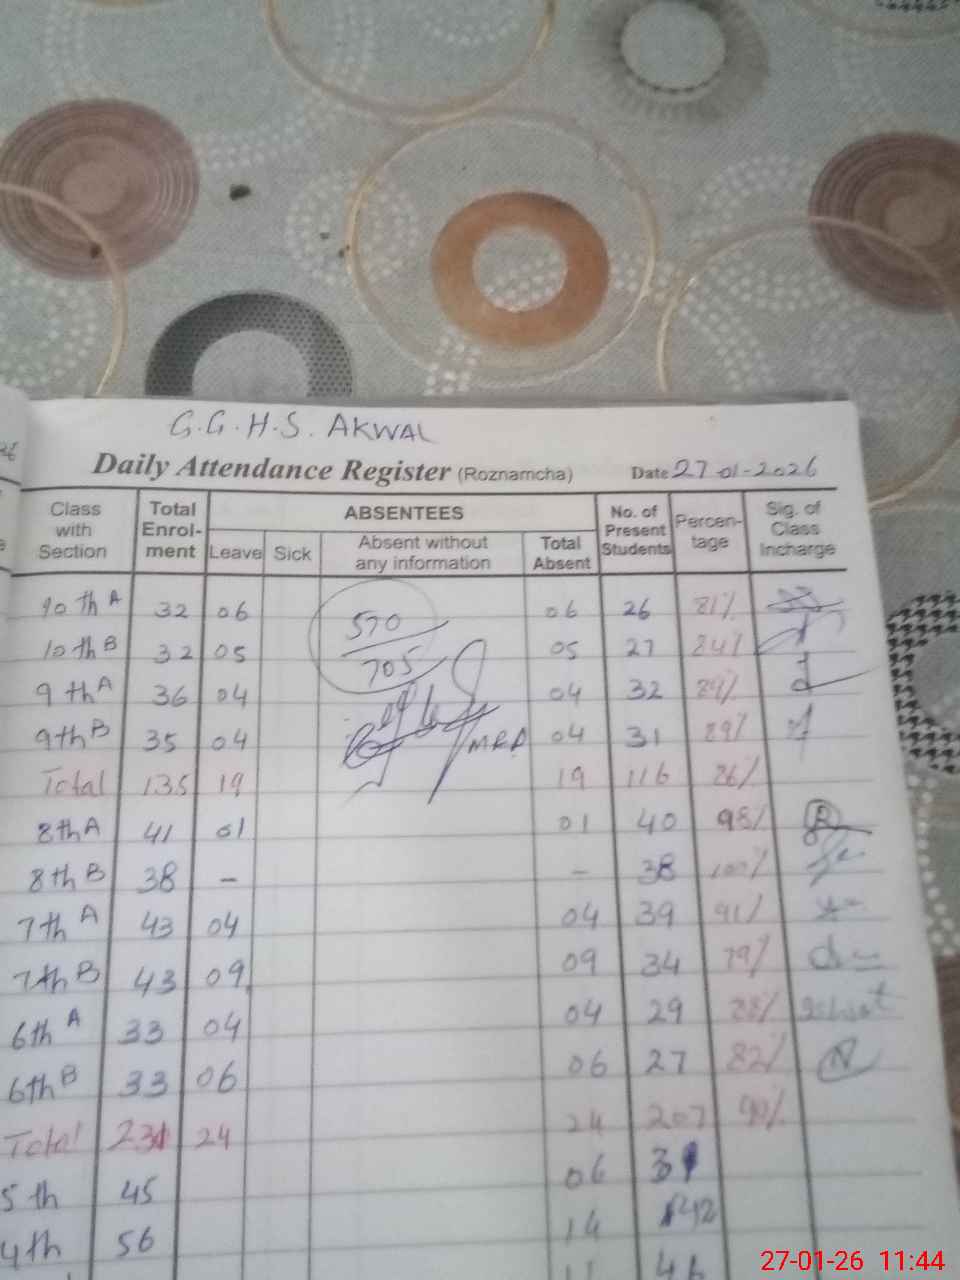 G.G.H.S. AKWAL
Daily Attendance Register (Roznamcha) Date 27-01-2026
Class with Section Total Enrol-ment ABSENTEES No. of Present Students Percen-tage Sig. of Class Incharge
Leave Sick Absent without any information Total Absent
10 th A 32 06 570 06 26 81%
10 th B 32 05 705 05 27 84%
9 th A 36 04 04 32 89%
9th B 35 04 MRP 04 31 89%
Total 135 19 19 116 86%
8th A 41 01 01 40 98%
8th B 38 - - 38 100%
7th A 43 04 04 39 91%
7th B 43 09 09 34 79%
6th A 33 04 04 29 88%
6th B 33 06 06 27 82%
Total 231 24 24 207 90%
5 th 45 06
4th 56 14 42
27-01-26 11:44